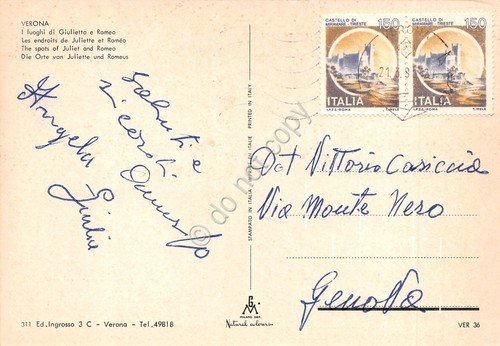 VERONA
I luoghi di Giulietta e Romeo
Les endroits de Juliette et Roméo
The spots of Juliet and Romeo
Die Orte von Juliette und Romeus
CASTELLO DI
MIRAMARE - TRIESTE
150
ITALIA
I.P.Z.S. ROMA
T. MELE
CASTELLO DI
MIRAMARE - TRIESTE
150
ITALIA
I.P.Z.S. ROMA
T. MELE
Saluti e
ricordi
Angela
Giulia
STAMPATO IN ITALIA
PRINTED IN ITALY
do not copy
Dot Vittorio Casiccia
Via Monte Nero
Genova
311 Ed. Ingrosso 3 C - Verona - Tel. 49818
Natural colours
VER 36